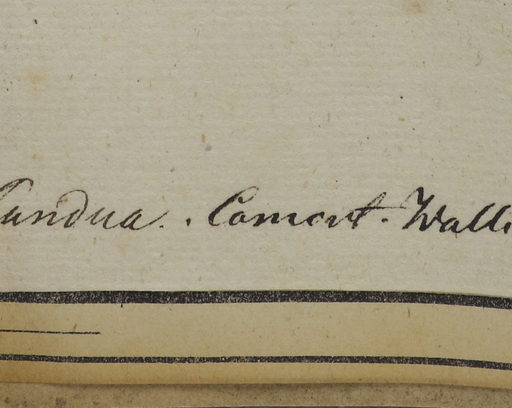 Pandua. . Comert. Walli